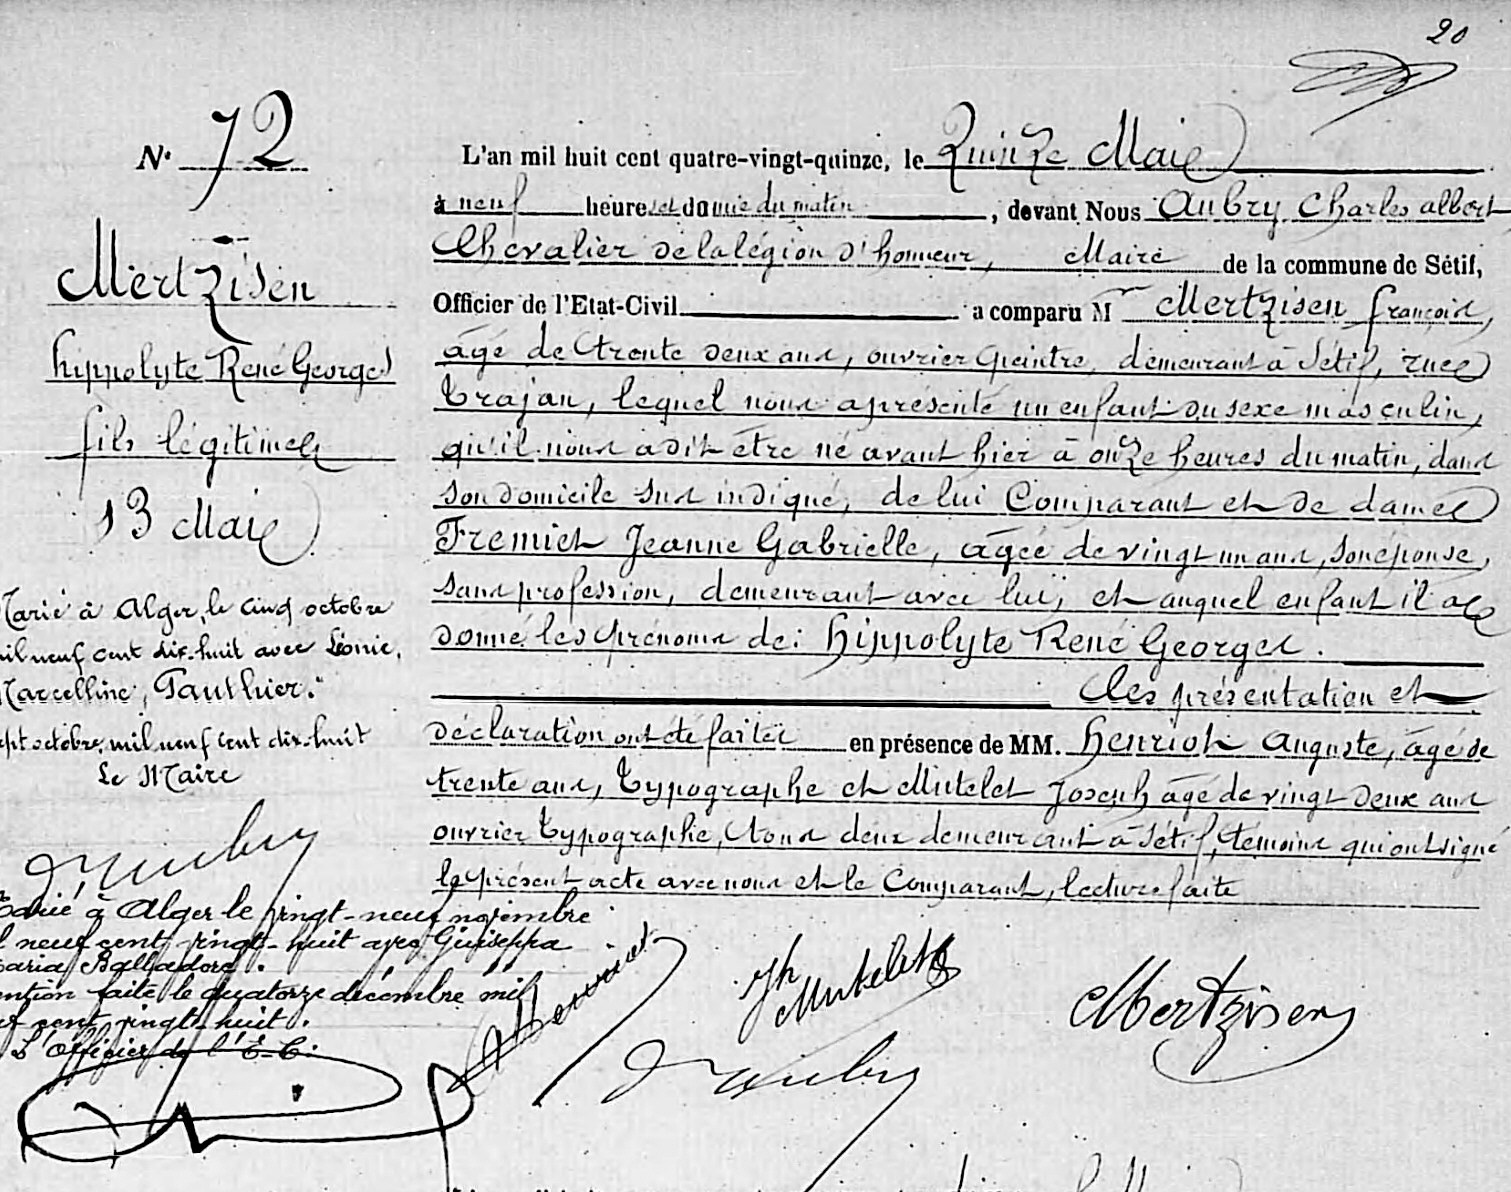 20
N° 72
Mertzisen
hippolyte René Georges
fils légitime
13 Mai
Marié à Alger, le cinq octobre
mil neuf cent dix-huit avec Léonie,
Marcelline, Gauthier."
sept octobre, mil neuf cent dix-huit
Le Maire
Marié à Alger le vingt-neuf novembre
mil neuf cent vingt-huit avec Giuseppa
Maria Balladore.
mention faite le quatorze décembre mil
neuf cent vingt-huit.
L'officier de l'E-C:
L'an mil huit cent quatre-vingt-quinze, le Quinze Mai
à neuf heures et demie du matin, devant Nous Aubry Charles albert
Chevalier de la légion d'honneur, Maire de la commune de Sétif,
Officier de l'Etat-Civil a comparu Mr Mertzisen françois,
âgé de trente deux ans, ouvrier peintre, demeurant à Sétif, rue
Trajan, lequel nous a présenté un enfant du sexe masculin,
qu'il nous a dit être né avant hier à onze heures du matin, dans
son domicile sus indiqué, de lui Comparant et de dame
Fremiet Jeanne Gabrielle, âgée de vingt un ans, son épouse,
sans profession, demeurant avec lui, et auquel enfant il a
donné les prénoms de: hippolyte René Georges.
Les présentation et
déclaration ont été faites en présence de MM. henriot Auguste, âgé de
trente ans, typographe et Mutelet Joseph âgé de vingt deux ans
ouvrier typographe, tous deux demeurant à Sétif, témoins qui ont signé
le présent acte avec nous et le Comparant, lecture faite
Jh Mutelet
Mertzisen